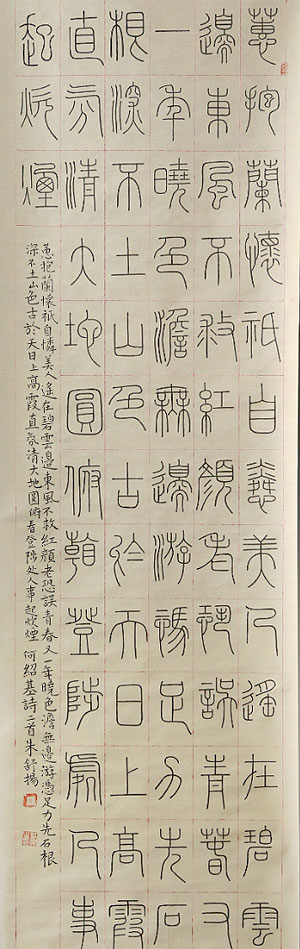 蕙抱蘭懷祇自憐美人遙在碧雲
邊東風不救紅顏老恐誤青春又
一年曉色澹無邊游憑足力先石
根深不土山色古於天日上高霞
直氛清大地圓俯看登陟處人事
起炊煙
蕙抱蘭懷祇自憐美人遙在碧雲邊東風不救紅顏老恐誤青春又一年曉色澹無邊游憑足力先石根
深不土山色古於天日上高霞直氛清大地圓俯看登陟处人事起炊煙 何紹基詩二首朱舒揚